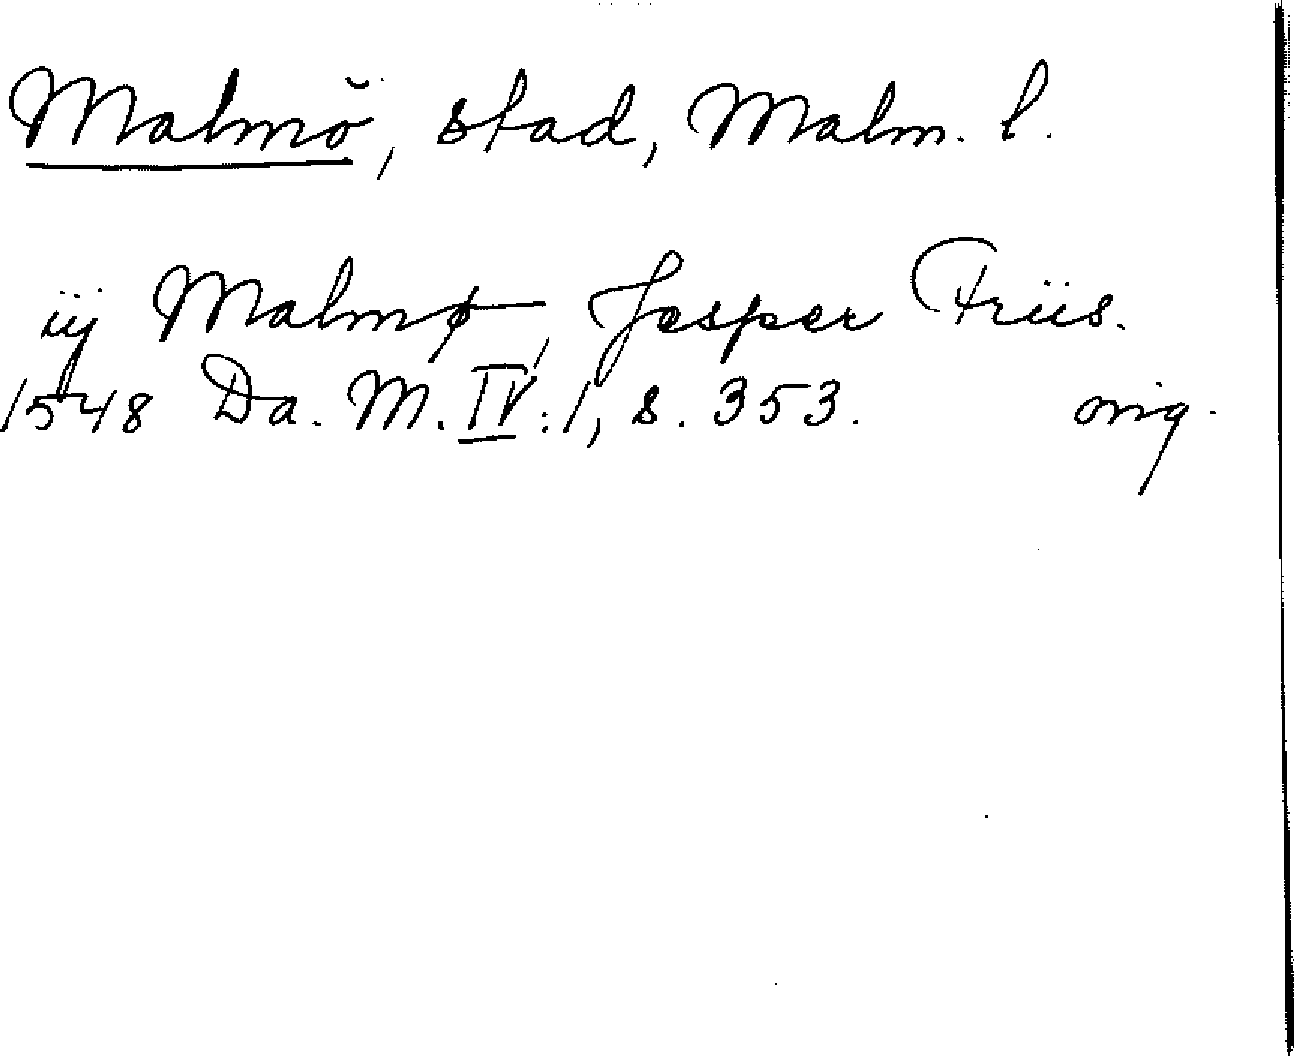 Malmö, stad, Malm. l.
iij Malmø, Jesper Friis.
1548 Da. M. IV:1, s. 353. orig.